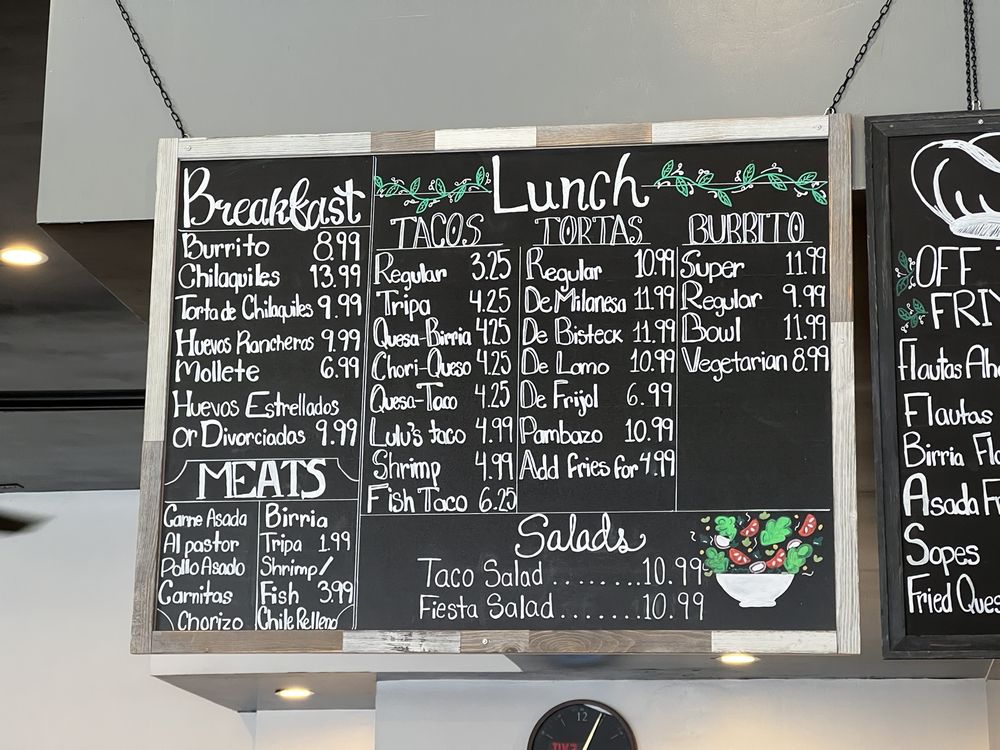 Breakfast
Burrito 8.99
Chilaquiles 13.99
Torta de Chilaquiles 9.99
Huevos Rancheros 9.99
Mollete 6.99
Huevos Estrellados
or Divorciados 9.99
MEATS
Carne Asada
Al pastor
Pollo Asado
Carnitas
Chorizo
Birria
Tripa 1.99
Shrimp/
Fish 3.99
Chile Relleno
Lunch
TACOS
Regular 3.25
Tripa 4.25
Quesa-Birria 4.25
Chori-Queso 4.25
Quesa-Taco 4.25
Lulu's taco 4.99
Shrimp 4.99
Fish Taco 6.25
TORTAS
Regular 10.99
De Milanesa 11.99
De Bisteck 11.99
De Lomo 10.99
De Frijol 6.99
Pambazo 10.99
Add fries for 4.99
BURRITO
Super 11.99
Regular 9.99
Bowl 11.99
Vegetarian 8.99
Salads
Taco Salad ........10.99
Fiesta Salad .......10.99
OFF
FRIY
Flautas
Flautas
Birria
Asada
Sopes
Fried
12